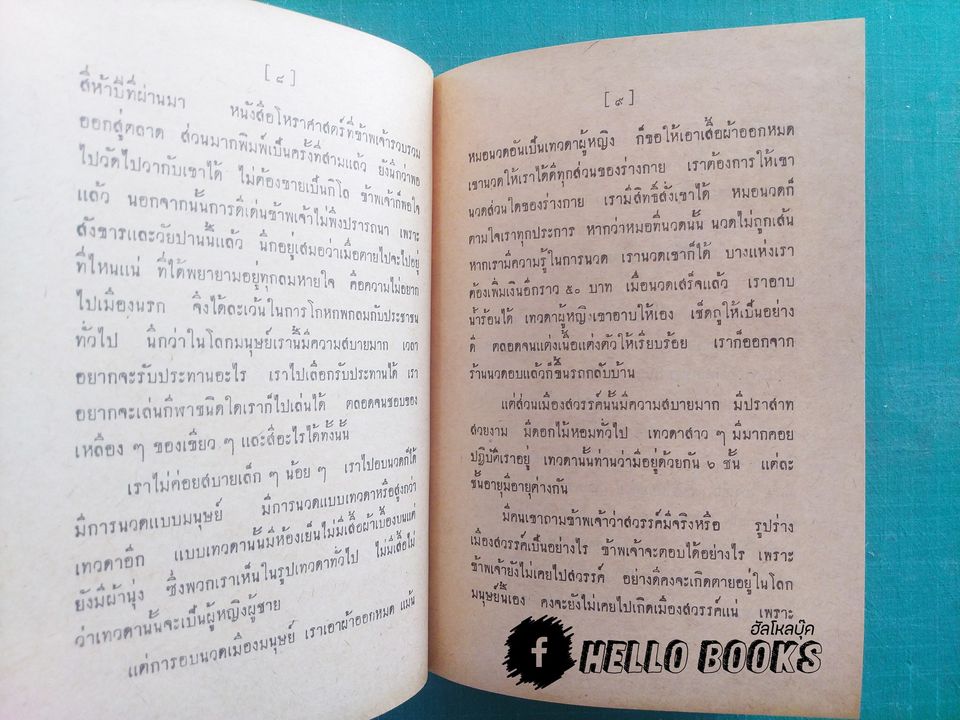 [ ๘ ]
สี่ห้าปีที่ผ่านมา หนังสือโหราศาสตร์ที่ข้าพเจ้ารวบรวม
ออกสู่ตลาด ส่วนมากพิมพ์เป็นครั้งที่สามแล้ว ยังนึกว่าพอ
ไปวัดไปวากับเขาได้ ไม่ต้องขายเป็นกิโล ข้าพเจ้าก็พอใจ
แล้ว นอกจากนั้นการดีเด่นข้าพเจ้าไม่พึงปรารถนา เพราะ
สังขารและวัยปานนี้แล้ว นึกอยู่เสมอว่าเมื่อตายไปจะไปอยู่
ที่ไหนแน่ ที่ได้พยายามอยู่ทุกลมหายใจ คือความไม่อยาก
ไปเมืองนรก จึงได้ละเว้นในการโกหกพกลมกับประชาชน
ทั่วไป นึกว่าในโลกมนุษย์เรานี้มีความสบายมาก เวลา
อยากจะรับประทานอะไร เราไปเลือกรับประทานได้ เรา
อยากจะเล่นกีฬาชนิดใดเราก็ไปเล่นได้ ตลอดจนชอบของ
เหลือง ๆ ของเขียว ๆ และสีอะไรได้ทั้งนั้น
เราไม่ค่อยสบายเล็ก ๆ น้อย ๆ เราไปอบนวดก็ได้
มีการนวดแบบมนุษย์ มีการนวดแบบเทวดาหรือสูงกว่า
เทวดาอีก แบบเทวดานั้นมีห้องเย็นไม่มีเสื้อผ้าเบื้องบนแต่
ยังมีผ้านุ่ง ซึ่งพวกเราเห็นในรูปเทวดาทั่วไป ไม่มีเสื้อไม่
ว่าเทวดานั้นจะเป็นผู้หญิงผู้ชาย
แต่การอบนวดเมืองมนุษย์ เราเอาผ้าออกหมด แม้น
[ ๙ ]
หมอนวดอันเป็นเทวดาผู้หญิง ก็ขอให้เอาเสื้อผ้าออกหมด
เขานวดให้เราได้ดีทุกส่วนของร่างกาย เราต้องการให้เขา
นวดส่วนใดของร่างกาย เรามีสิทธิ์สั่งเขาได้ หมอนวดก็
ตามใจเราทุกประการ หากว่าหมอที่นวดนั้น นวดไม่ถูกเส้น
หากเรามีความรู้ในการนวด เรานวดเขาก็ได้ บางแห่งเรา
ต้องเพิ่มเงินอีกราว ๕๐ บาท เมื่อนวดเสร็จแล้ว เราอาบ
น้ำร้อนได้ เทวดาผู้หญิงเขาอาบให้เอง เช็ดถูให้เป็นอย่าง
ดี ตลอดจนแต่งเนื้อแต่งตัวให้เรียบร้อย เราก็ออกจาก
ร้านนวดอบแล้วก็ขึ้นรถกลับบ้าน
แต่ส่วนเมืองสวรรค์นั้นมีความสบายมาก มีปราสาท
สวยงาม มีดอกไม้หอมทั่วไป เทวดาสาว ๆ มีมากคอย
ปฏิบัติเราอยู่ เทวดานั้นท่านว่ามีอยู่ด้วยกัน ๖ ชั้น แต่ละ
ชั้นอายุมีอายุต่างกัน
มีคนเขาถามข้าพเจ้าว่าสวรรค์มีจริงหรือ รูปร่าง
เมืองสวรรค์เป็นอย่างไร ข้าพเจ้าจะตอบได้อย่างไร เพราะ
ข้าพเจ้ายังไม่เคยไปสวรรค์ อย่างดีคงจะเกิดตายอยู่ในโลก
มนุษย์นี้เอง คงจะยังไม่เคยไปเกิดเมืองสวรรค์แน่ เพราะ
ฮัลโหลบุ๊ค
f HELLO BOOKS